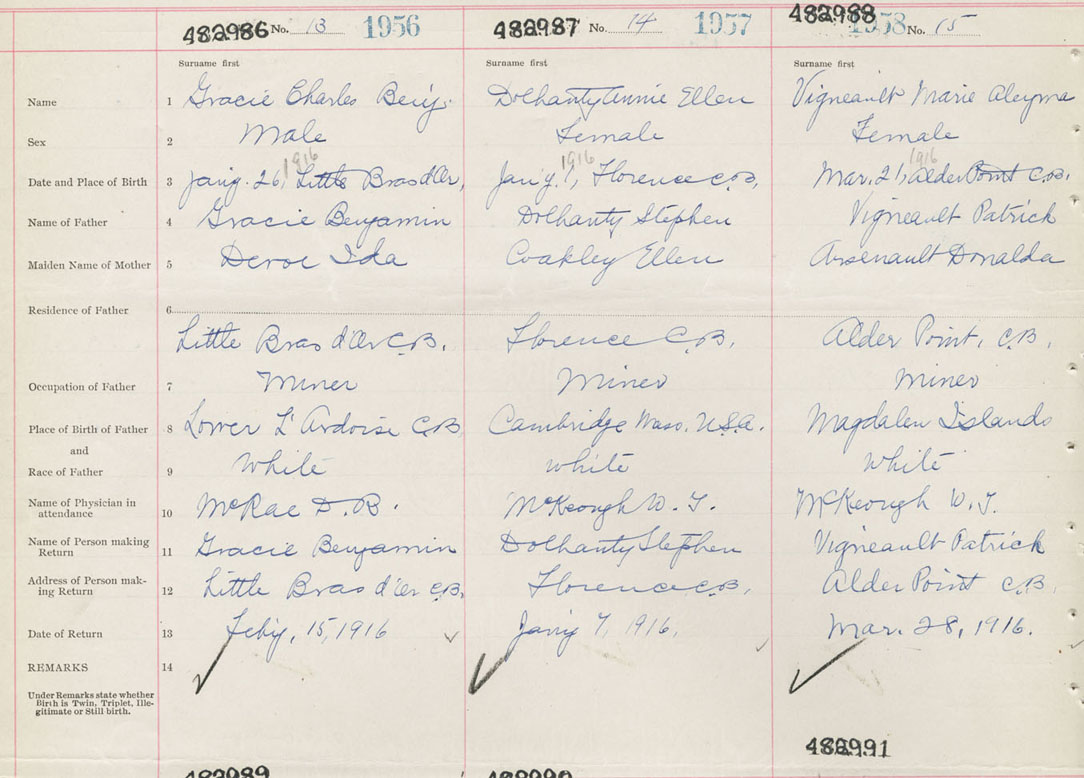 482986 No. 13 1956 482987 No. 14 1957 482988 1958 No. 15
Surname first Surname first Surname first
Name 1 Gracie Charles Benj. Dolhanty Annie Ellen Vigneault Marie
Sex 2 Male Female Female
1916 1916 1916
Date and Place of Birth 3 Jany. 26, Little Bras d'Or, Jany. 1, Florence C.B. Mar. 21, Alder Point C.B.
Name of Father 4 Gracie Benjamin Dolhanty Stephen Vigneault Patrick
Maiden Name of Mother 5 Deroe Ida Coakley Ellen Arsenault Donalda
Residence of Father 6
Little Bras d'Or C.B. Florence C.B. Alder Point, C.B.
Occupation of Father 7 Miner Miner Miner
Place of Birth of Father 8 Lower L'Ardoise C.B. Cambridge Mass. U.S.A. Magdalen Islands
and
Race of Father 9 White White White
Name of Physician in
attendance 10 McRae D. B. McKeough W. J. McKeough W. J.
Name of Person making
Return 11 Gracie Benjamin Dolhanty Stephen Vigneault Patrick
Address of Person mak-
ing Return 12 Little Bras d'Or C.B. Florence C.B. Alder Point C.B.
Date of Return 13 Feby. 15, 1916 Jany 7, 1916. Mar. 28, 1916.
REMARKS 14
Under Remarks state whether
Birth is Twin, Triplet, Ille-
gitimate or Still birth.
482991
482989 482990